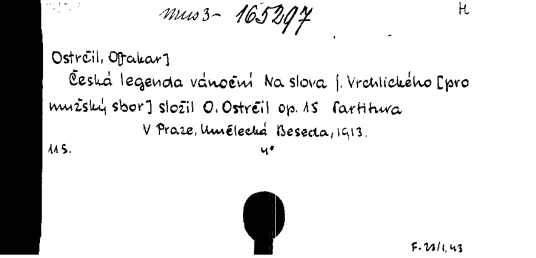 mus3- 165297 H
Ostrčil, O[takar]
Česká legenda vánoční Na slova J. Vrchlického [pro
mužský sbor] složil O. Ostrčil op. 15 Partitura
V Praze, Umělecká Beseda, 1913.
11 S. 4°
F. 23/1, 43